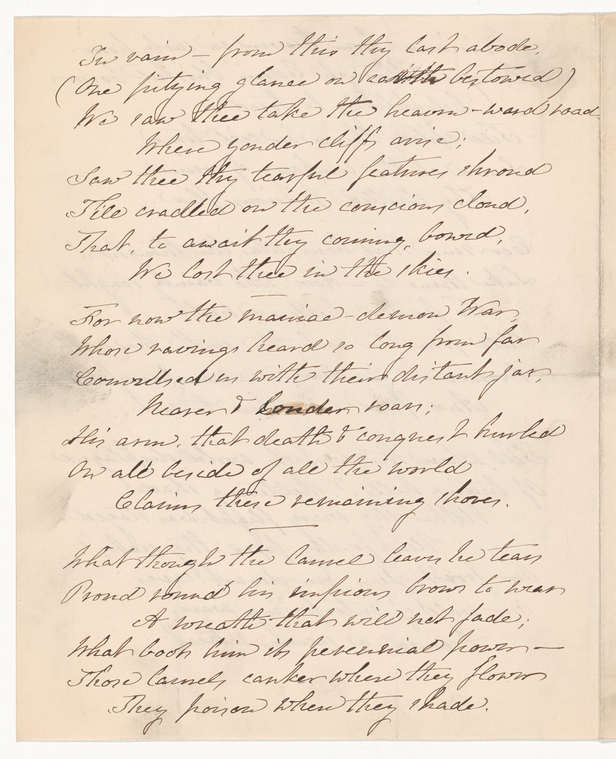 In vain – from this thy last abode,
(One pitying glance on earth bestowed)
We saw thee take the heaven-ward road
Where yonder cliffs arise;
Saw thee thy tearful features shroud
Till cradled on the conscious cloud,
That, to await thy coming, bowed,
We lost thee in the skies.
For now the maniac-demon War,
Whose ravings heard so long from far
Convulsed us with their distant jar,
Nearer & louder roars;
His arm, that death & conquest hurled
On all beside of all the world
Claims these remaining shores.
What though the laurel leaves he tears
Proud round his impious brows to wear
A wreath that will not fade;
What boots him its perennial power –
Those laurels canker where they flower
They poison where they shade.